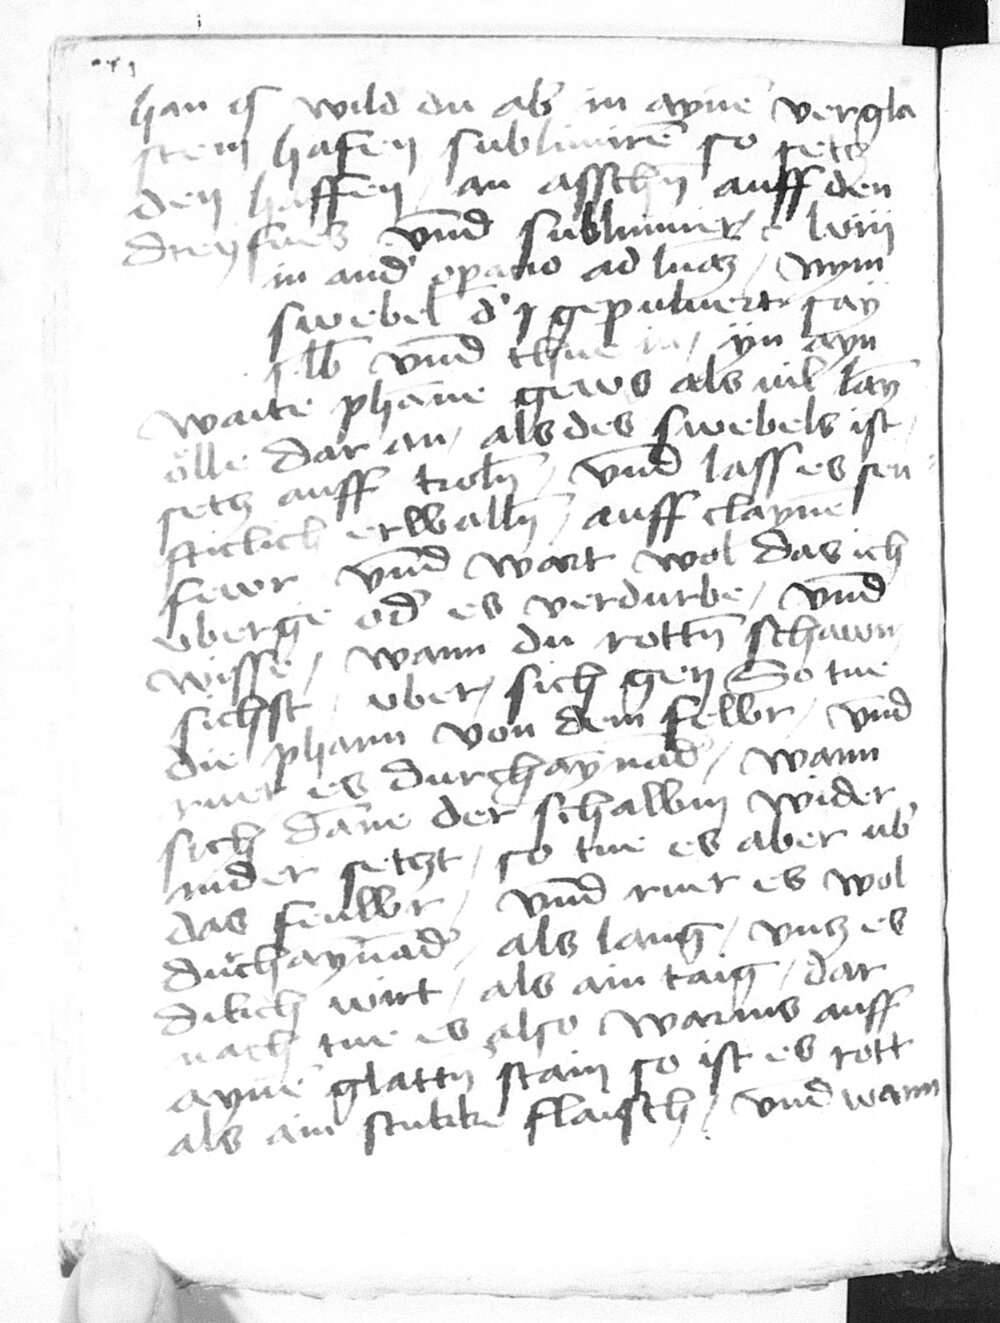 han is wild du ab in ayne vergla
stem hafen sublimire so setz
den haffen an asschn auff den
dreyfues vnd sublimier
in and operatio ad lucz / Nym
swebel gepuluert
lb vnd thue in / yn ayn
waite phane gews als vil lay
ölle dar an / als des swebels ist /
setz auff / vnd lass es sen
ftiklich erwalln / auff clayne
fewr vnd wart wol das ich
vberge od es verdurbe / vnd
wisse / wann du rottn schawm
sichst / vber sich gen So tue
die phann von dem fewr / vnd
ruer es durchaynad / wann
sich dane der schawm wider
nider setzt / so tue es aber vb
das fewr / vnd ruer es wol
durchaynad / als lang / vntz es
dikch wirt / als ain taig / dar
nach tue es also warms auff
ayne glattn stain so ist es rott
als ain stukk flaisch / vnd wann